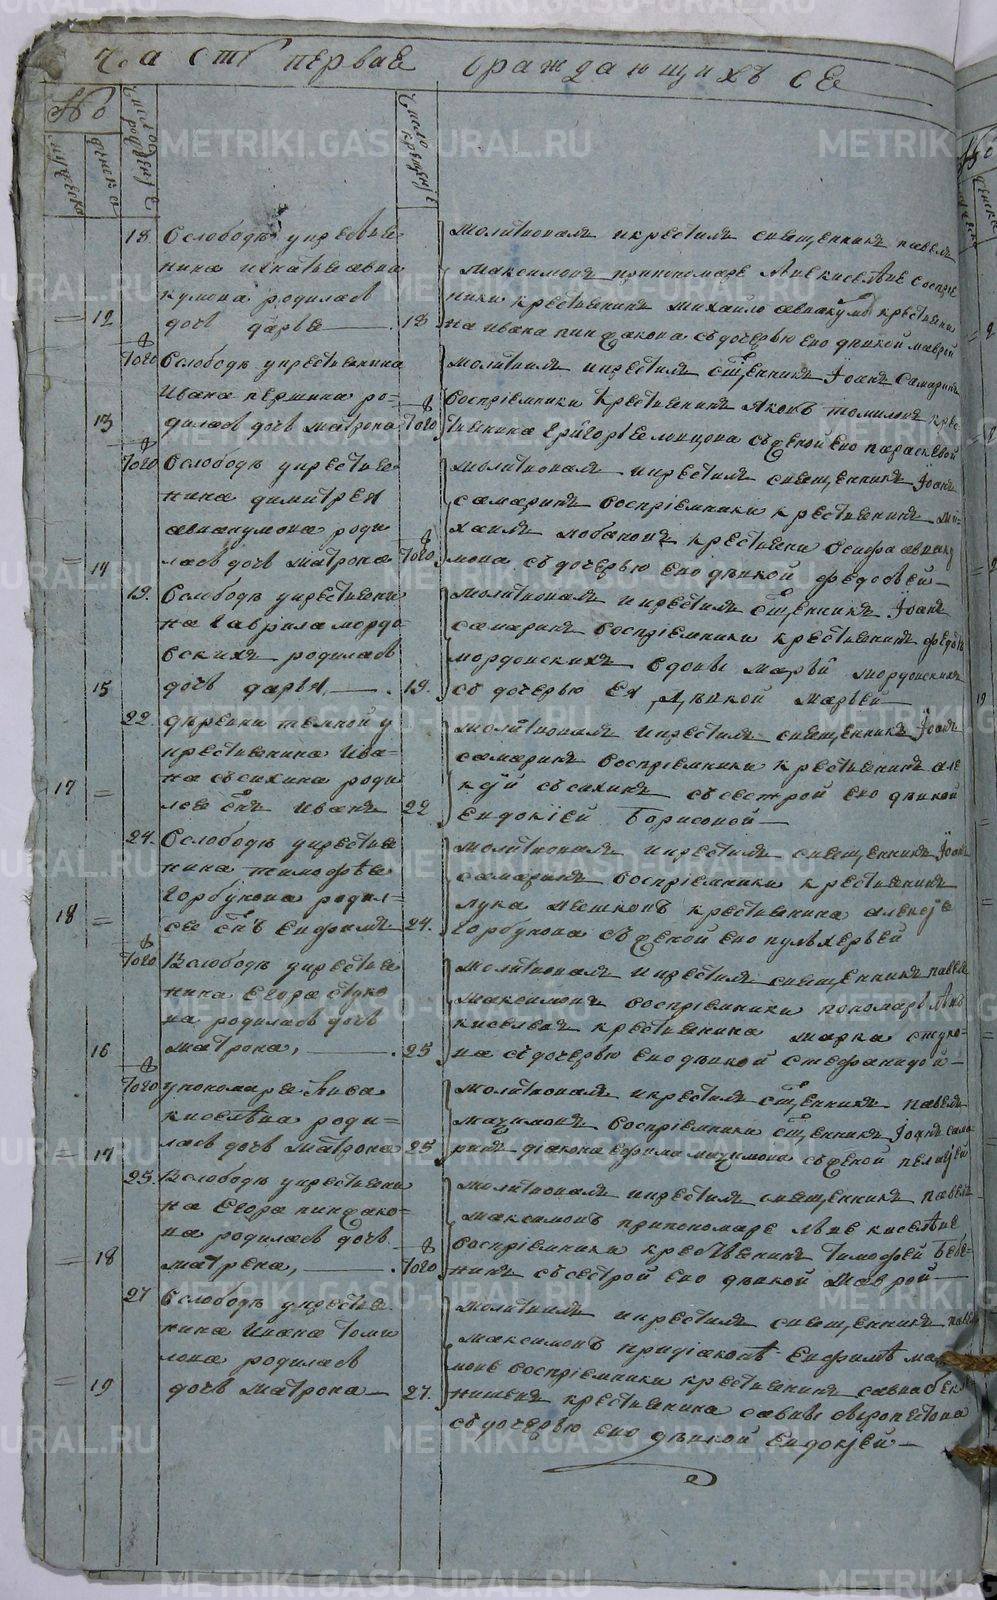 Часть первая ораждающихъ се
№
мужеска
женска
число рожденіе
число крещеніе
18 Вслободѣ укрестья
нина игнатья авва
кумова родилась
12 дочь дарье 18
молитвовалъ икрестилъ священникъ павелъ
максимовъ припономаре лвѣ киселѣве воспріе
ники крестьянинъ михайло аввакумовъ крестьяни
на ивана пиндакова сдочерью его дѣвкой маврой
того Вслободѣ укрестьянина
Ивана першина ро=
13 дилась дочь матрона того
молитвилъ икрестилъ священникъ Іоанъ Самаринъ
воспріемники крестьянинъ Яковъ томиловъ крес
тьянина григорье сженой его параскевой
того Вслободѣ укрестьяни
нина димитрея
аввакумова роди
14 лась дочь матрона того
молитвовалъ икрестилъ священникъ Іоанъ
самаринъ воспріемники крестьянинъ ми=
хаилъ лобановъ крестьяни осифа авваку
мова сдочерью его дѣвкой федосьей
19. Вслободѣ укрестьяни
на гаврила мордо
вскихъ родилась
15 дочь дарья, 19.
молитвовалъ икрестилъ священникъ Іоанъ
самаринъ воспріемники крестьянинъ федотъ
мордовскихъ вдовы марьи мордовскихъ
съ дочерью ея дѣвкой марьей
22. деревни темной у
крестьянина ива=
на съсихина роди
17 лсе сынъ иванъ 22
молитвовалъ икрестилъ священникъ Іоанъ
самаринъ воспріемники крестьянинъ але
ѯѣй съсахинъ съсестрой его дѣвкой
евдокіей борисовой
24. Вслободѣ укрестья
нина тимофѣа
горбунова родил=
18 се сынъ ефимъ 24.
молитвовалъ икрестилъ священникъ Іоанъ
самаринъ воспріемники крестьянинъ
лука мешковъ крестьянина алексѣе
горбунова сженой его пульхерьей
того Вслободѣ укрестья
нина егора стуко
ва родилась дочь
16 матрона, 25
молитвовалъ икрестилъ священникъ павелъ
максимовъ воспріемники пономарь лѣвъ
киселевъ крестьянина марка стуко
ва сдочерью его дѣвкой стефанидой
того упономаря лива
киселѣва роди=
17 лась дочь матрона 25
молитвовалъ икрестилъ священникъ павелъ
маѯимовъ воспріемники священникъ Іоанъ сама
ринъ діакона ефима маѯимова сженой пелагѣей
25. Вслободѣ укрестьяни
на егора пиндако=
ва родилась дочь
18 матрена, того
молитвовалъ икрестилъ священникъ павелъ
максимовъ припономаре лвѣ киселѣве
воспріемники крестьянинъ тимофей бабе=
нинъ съсестрой его дѣвкой маврой
27 Вслободѣ укрестья
нина ивана томи
лова родилась
19 дочь матрона 27.
молитвилъ икрестилъ священникъ павелъ
максимовъ придіаконѣ ефимѣ ма
мове воспріемники крестьянинъ савва бекле
нищевъ крестьянина саввы
съ дочерью его дѣвкой евдокіей
METRIKI.GASO-URAL.RU